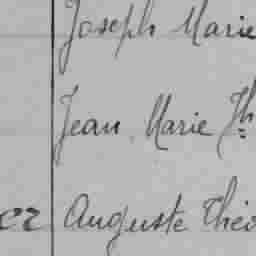 Joseph Marie
Jean Marie Th
cz Auguste Théo